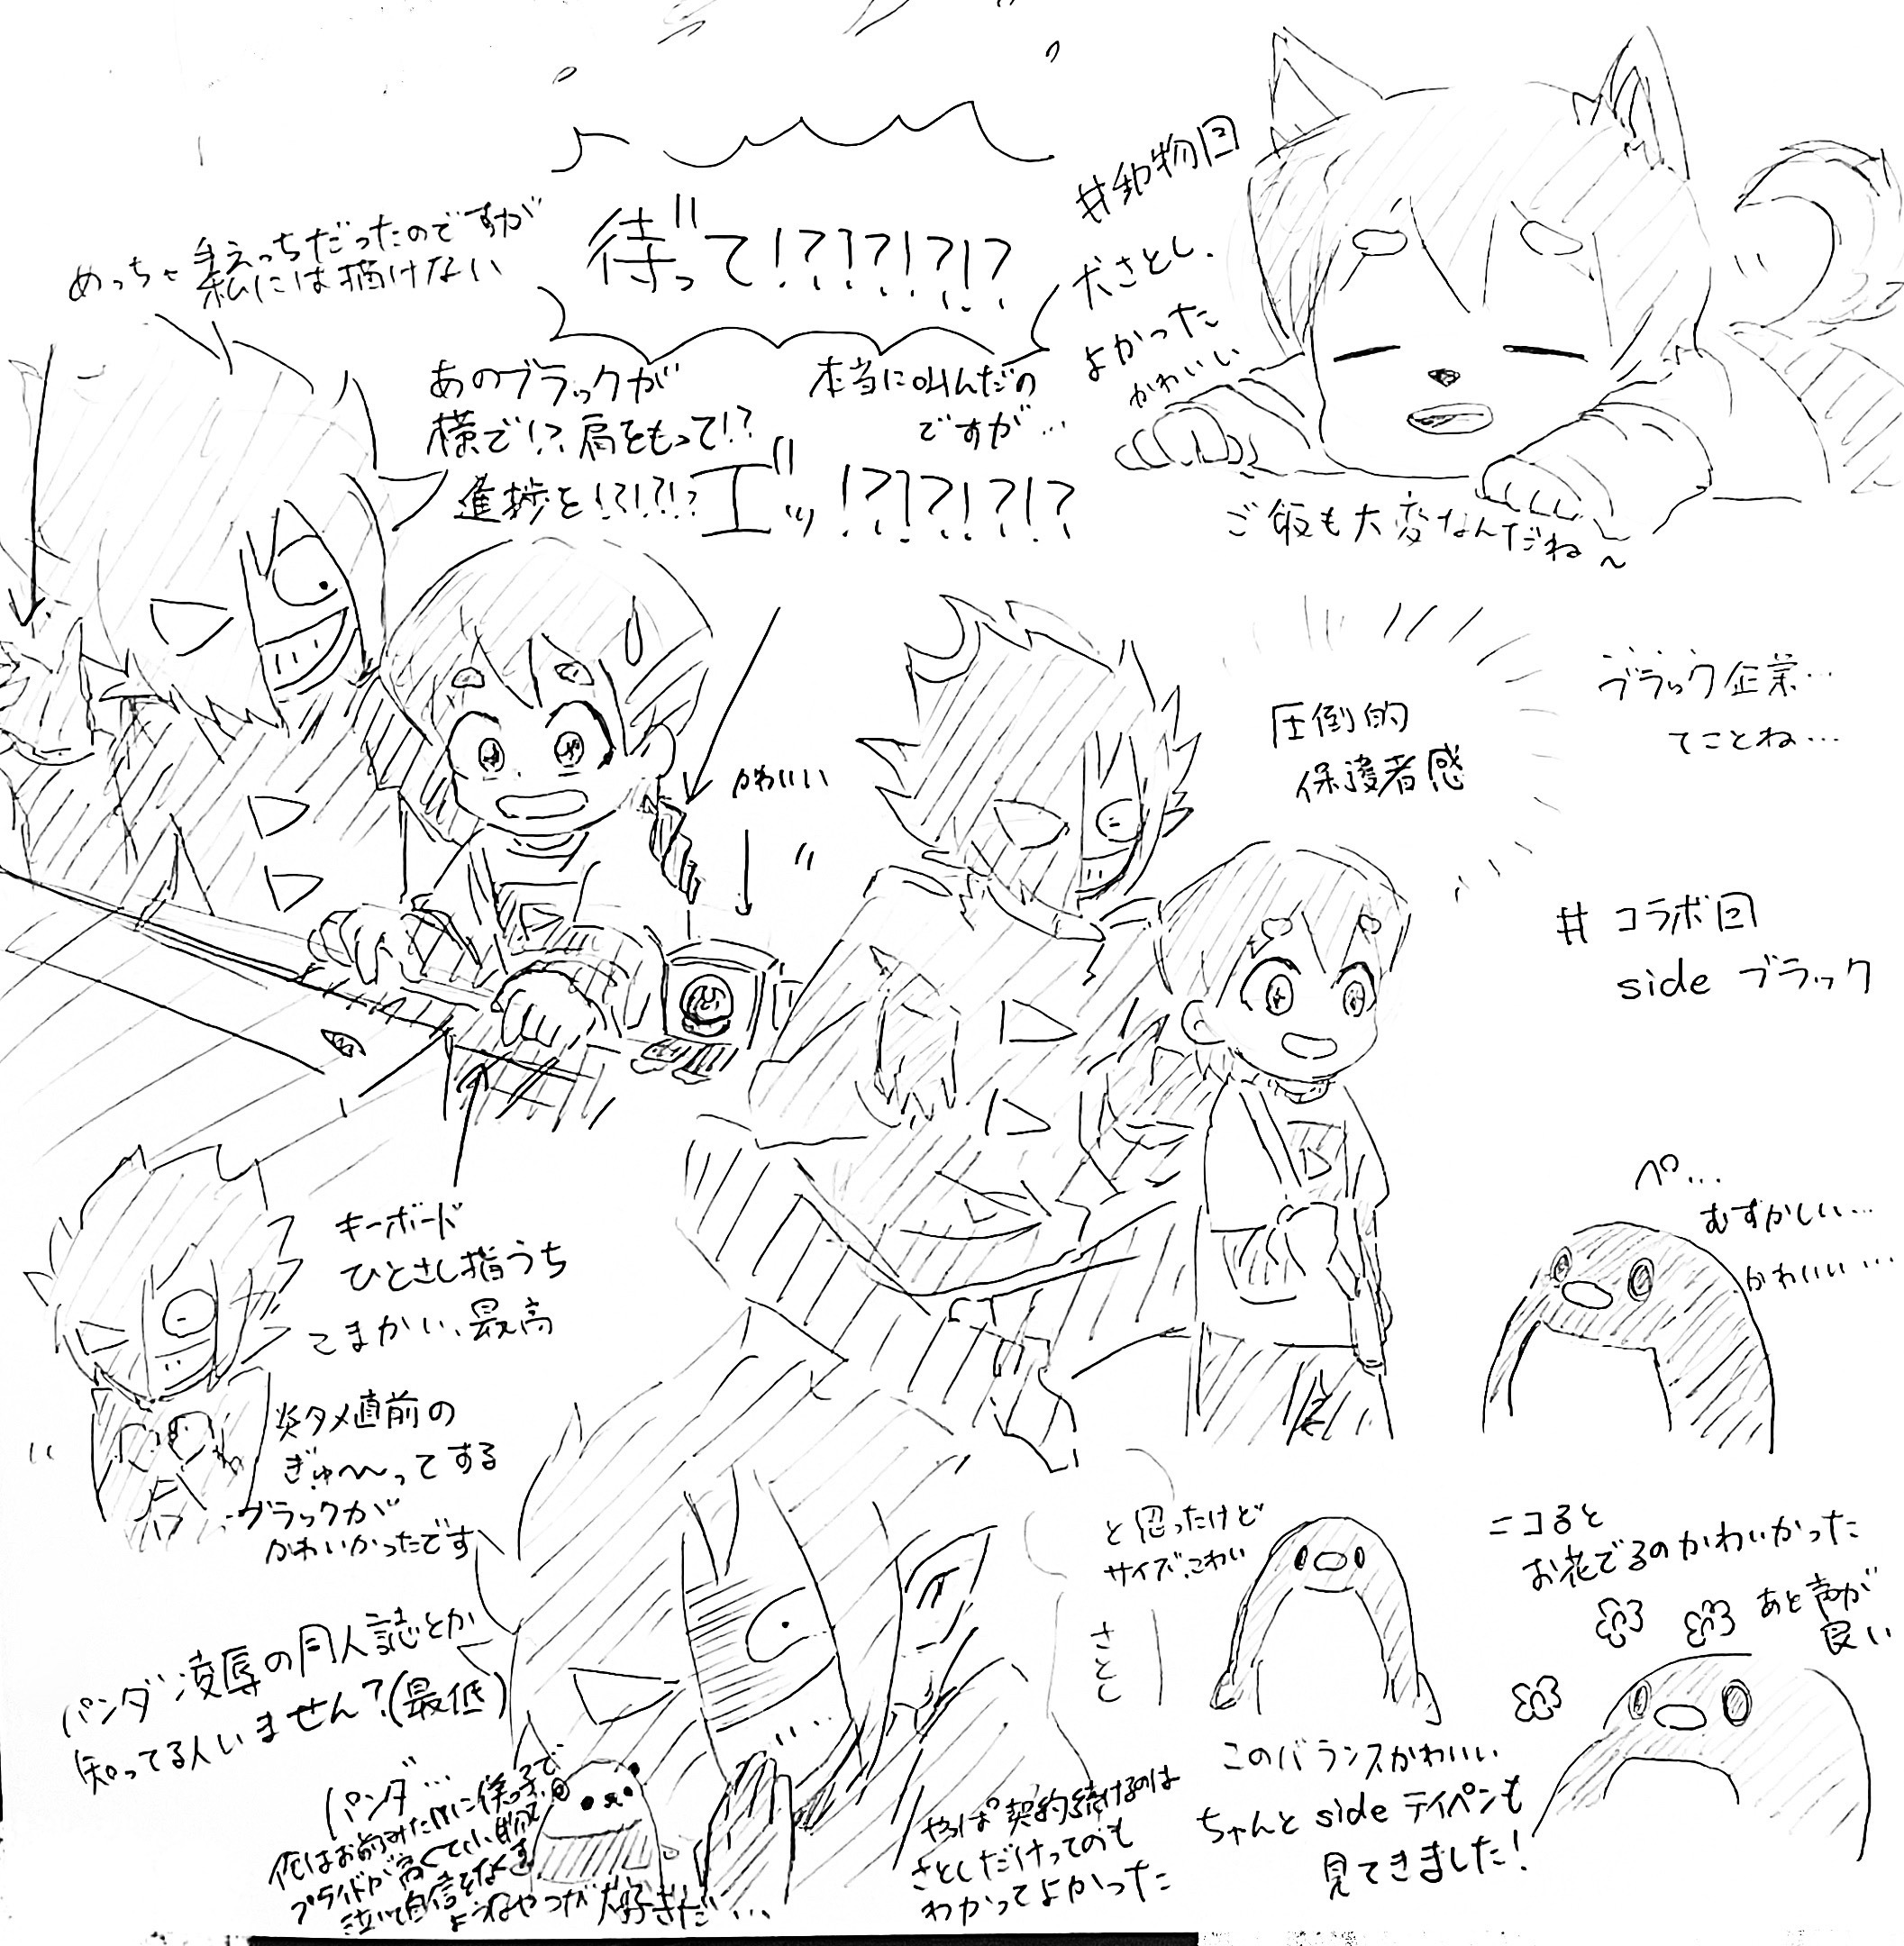 めっちゃ手えっちだったのですが
私には描けない
待って!?!?!?!?
あのブラックが
横で!?肩をもって!?
進捗を!?!?!!?
本当に叫んだの
ですが…
エ゛ッ!?!?!?!?
#動物回
犬さとし、
よかった
かわいい
ご飯も大変なんだね〜
かわいい
圧倒的
保護者感
ブラック企業…
てことね…
#コラボ回
side ブラック
キーボード
ひとさし指うち
こまかい、最高
炎タメ直前の
ぎゅ〜〜ってする
ブラックが
かわいかったです
ペ…
むずかしい…
かわいい…
と思ったけど
サイズこわい
さとし
ニコると
お花でるのかわいかった
あと声が
良い
このバランスかわいい
ちゃんとsideテイペンも
見てきました!
パンダ凌辱の同人誌とか
知ってる人いません?(最低)
パンダ…
俺はお前みたいに様子で
プライドが高くて
泣いて自信をなくす
ようなやつが大好きだ…
やっぱ契約続けるのは
さとしだけってのも
わかってよかった